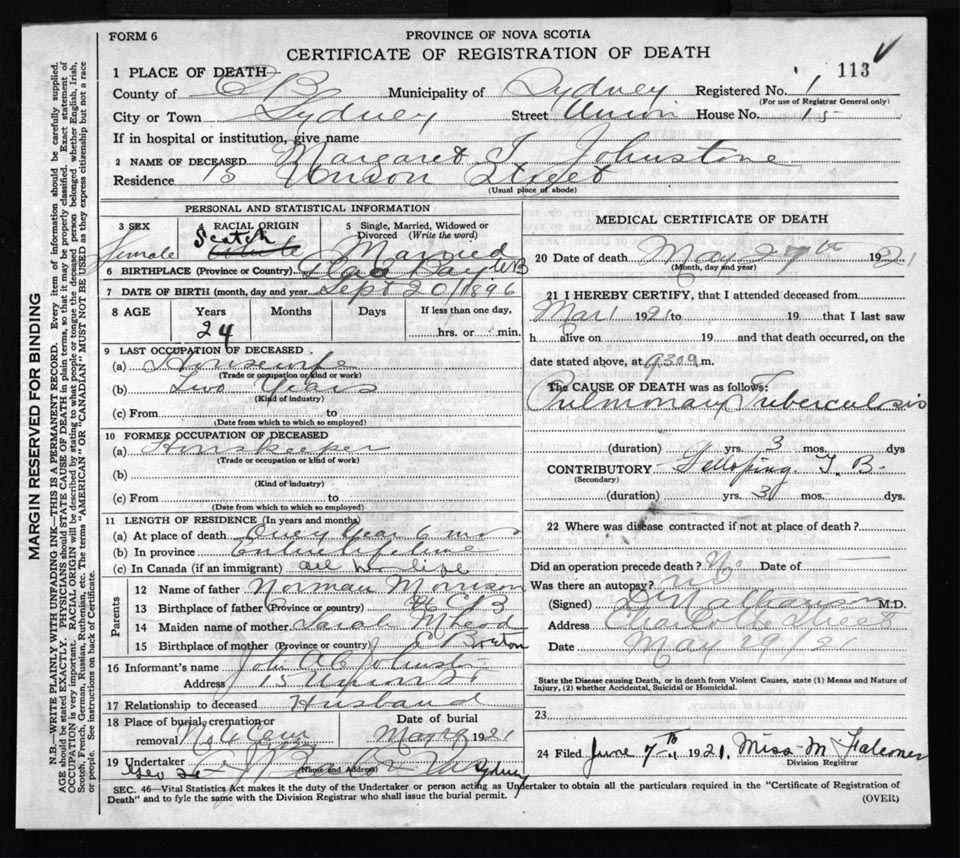 FORM 6
PROVINCE OF NOVA SCOTIA
CERTIFICATE OF REGISTRATION OF DEATH
113
1 PLACE OF DEATH
County of C B Municipality of Sydney Registered No. 1
(For use of Registrar General only)
City or Town Sydney Street Union House No. 15
If in hospital or institution, give name
2 NAME OF DECEASED Margaret J. Johnstone
Residence 15 Union Street
(Usual place of abode)
PERSONAL AND STATISTICAL INFORMATION
3 SEX RACIAL ORIGIN 5 Single, Married, Widowed or Divorced (Write the word)
Female Scotch Married
6 BIRTHPLACE (Province or Country)
7 DATE OF BIRTH (month, day and year) Sept 20/1896
8 AGE Years Months Days If less than one day,
24 hrs. or min.
9 LAST OCCUPATION OF DECEASED
(a) Housewife
(Trade or occupation or kind of work)
(b) Two Years
(Kind of industry)
(c) From to
(Date from which to which so employed)
10 FORMER OCCUPATION OF DECEASED
(a) Housekeeper
(Trade or occupation or kind of work)
(b)
(Kind of industry)
(c) From to
(Date from which to which so employed)
11 LENGTH OF RESIDENCE (In years and months)
(a) At place of death One year 6 mos
(b) In province Entire lifetime
(c) In Canada (if an immigrant) all her life
Parents
12 Name of father Norman Morrison
13 Birthplace of father (Province or country) C B
14 Maiden name of mother Sarah McLeod
15 Birthplace of mother (Province or country) C Breton
16 Informant's name John Johnston
Address 15 Union St
17 Relationship to deceased Husband
18 Place of burial, cremation or removal Date of burial
1921
19 Undertaker Sydney
(Name and Address)
MEDICAL CERTIFICATE OF DEATH
20 Date of death May 29th 1921
(Month, day and year)
21 I HEREBY CERTIFY, that I attended deceased from
Mar 1 1921 to 19 that I last saw
h alive on 19 and that death occurred, on the
date stated above, at m.
The CAUSE OF DEATH was as follows:
Pulmonary Tuberculosis
(duration) yrs. 3 mos. dys.
CONTRIBUTORY Galloping T. B.
(Secondary)
(duration) yrs. 3 mos. dys.
22 Where was disease contracted if not at place of death?
Did an operation precede death? No Date of
Was there an autopsy? no
(Signed) M.D.
Address Charlotte Street
Date May 29/21
State the Disease causing Death, or in death from Violent Causes, state (1) Means and Nature of Injury, (2) whether Accidental, Suicidal or Homicidal.
23
24 Filed June 7th, 1921. Miss M Falconer
Division Registrar
SEC. 46—Vital Statistics Act makes it the duty of the Undertaker or person acting as Undertaker to obtain all the particulars required in the "Certificate of Registration of
Death" and to fyle the same with the Division Registrar who shall issue the burial permit.
(OVER)
MARGIN RESERVED FOR BINDING
N.B.—WRITE PLAINLY WITH UNFADING INK—THIS IS A PERMANENT RECORD. Every item of information should be carefully supplied.
AGE should be stated EXACTLY. PHYSICIANS should STATE CAUSE OF DEATH in plain terms, so that it may be properly classified. Exact statement of
OCCUPATION is very important. RACIAL ORIGIN will be described by stating to what people or tongue the deceased person belonged whether English, Irish,
Scotch, French, German, Russian, Ruthenian, etc. The terms "AMERICAN" OR "CANADIAN" MUST NOT BE USED as they express citizenship but not a race
or people. See instructions on back of Certificate.